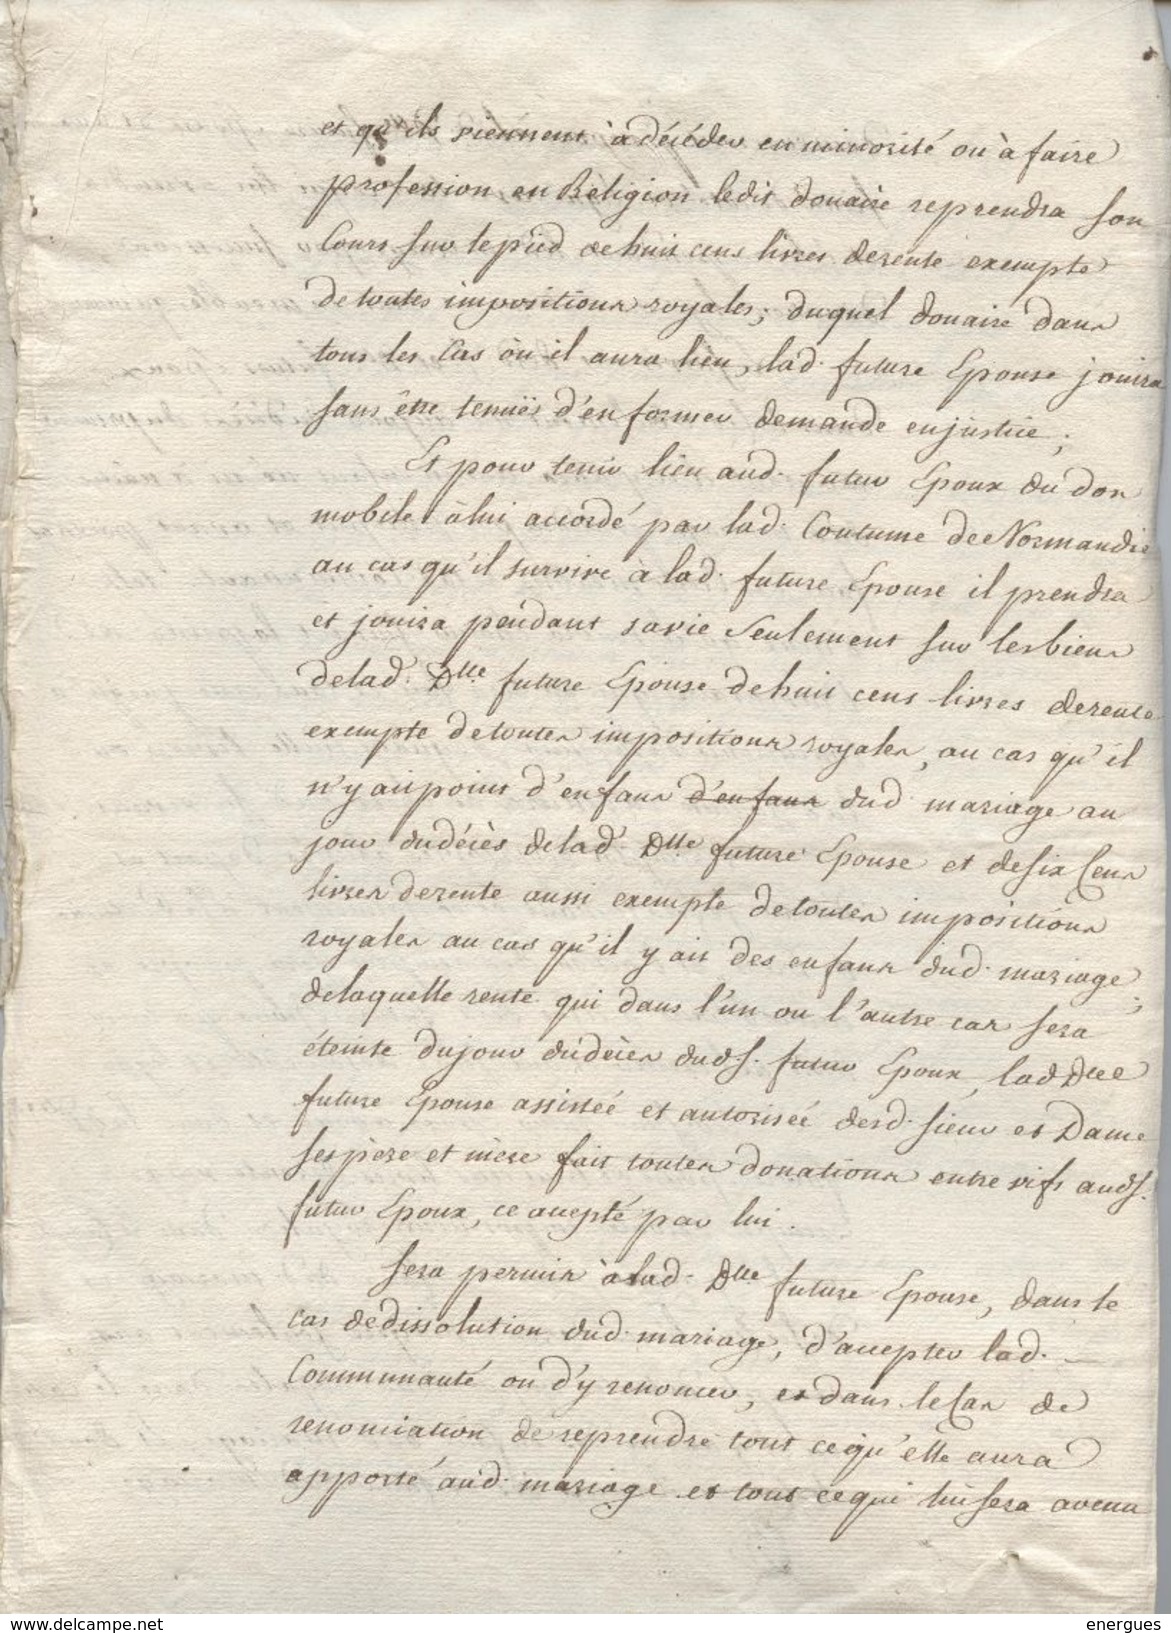 et qu'ils viennent à décéder en minorité ou à faire
profession en Religion ledit douaire reprendra son
Cours sur le pied de huit cens livres de rente exempte
de toutes impositions royales; duquel douaire dans
tous les Cas où il aura lieu, lad. future Epouse jouira
sans être tenuës d'en former demande en justice;
Et pour tenir lieu aud. futur Epoux du don
mobile à lui accordé par lad. Coutume de Normandie
au cas qu'il survive à lad. future Epouse il prendra
et jouira pendant sa vie seulement sur les biens
de lad. Dlle future Epouse de huit cens livres de rente
exempte de toutes impositions royales, au cas qu'il
n'y ait point d'enfans d'enfans dud. mariage au
jour du décès de lad. Dlle future Epouse et de six Cens
livres de rente aussi exempte de toutes impositions
royales au cas qu'il y ait des enfans dud. mariage;
de laquelle rente qui dans l'un ou l'autre cas sera
éteinte du jour du décès dud. S. futur Epoux, lad Dlle
future Epouse assistée et autorisée desd. sieur et Dame
ses père et mère fait toutes donations entre vifs aud S.
futur Epoux, ce accepté par lui.
Sera permis à lad. Dlle future Epouse, dans le
cas de dissolution dud. mariage, d'accepter lad.
Communauté ou d'y renoncer, et dans le Cas de
renonciation de reprendre tout ce qu'elle aura
apporté aud. mariage et tout ce qui lui sera avenu
www.delcampe.net
energues